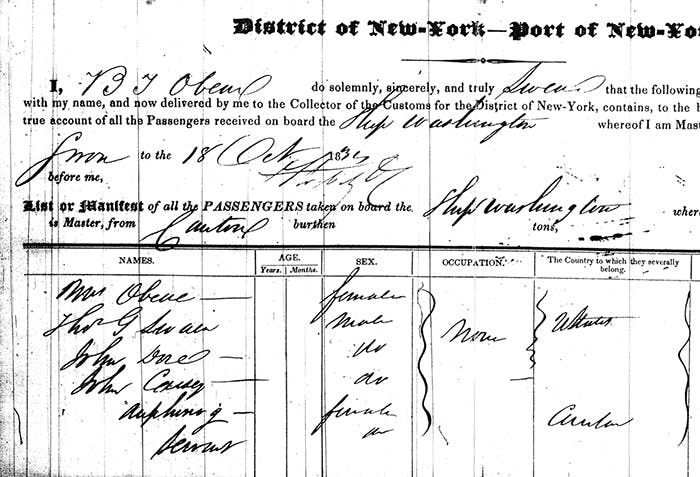 District of New-York—Port of New-Yo
I, B T Obear do solemnly, sincerely, and truly Swear that the following
with my name, and now delivered by me to the Collector of the Customs for the District of New-York, contains, to the b
true account of all the Passengers received on board the Ship Washington whereof I am Mast
Sworn to the 18 Oct 183
before me,
List or Manifest of all the PASSENGERS taken on board the Ship Washington wher
is Master, from Canton burthen tons,
NAMES. AGE. SEX. OCCUPATION. The Country to which they severally
Years. Months. belong.
Mrs Obear — female
Thos G Swain male None UStates
John Dore — do
John Cassey — do
female Canton
Servant do